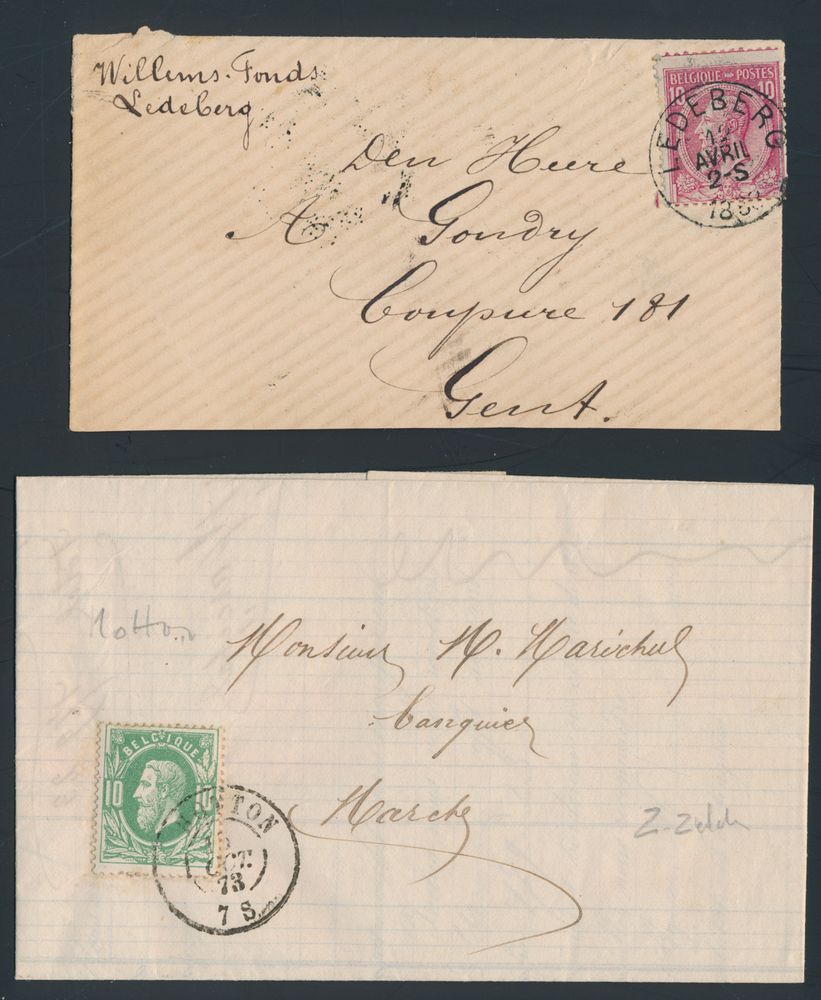 Willems-Fonds
Ledeberg
BELGIQUE POSTES
10 10
LEDEBERG
12
AVRIL
2-S
Den Heere
A Gondry
Coupure 181
Gent.
Monsieur M. Maréchal
banquier
Marche
BELGIQUE
10
OCT.
73
7 S.